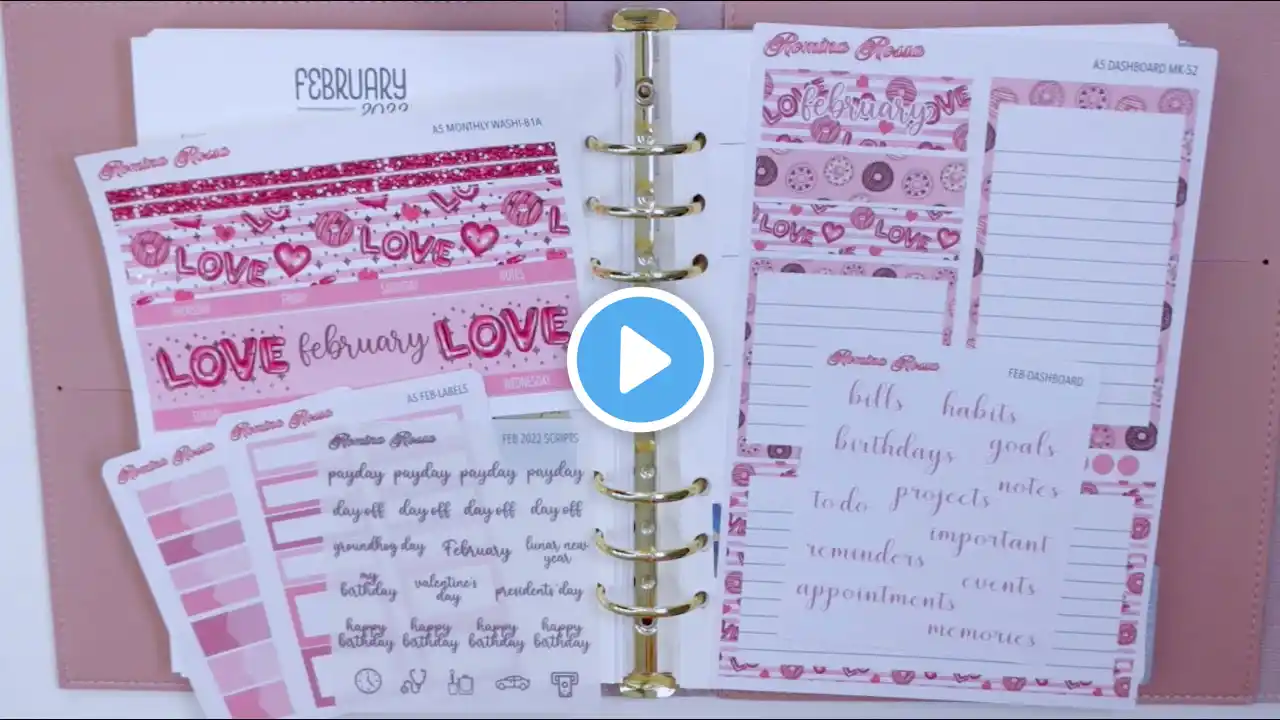 FEBRUARY
2022
A5 MONTHLY WASHI-81A
Romina Rossa
LOVE LOVE
THURSDAY FRIDAY SATURDAY NOTES
LOVE february LOVE
WEDNESDAY
A5 FEB-LABELS
Romina Rossa
Romina Rossa
Romina Rossa
FEB 2022 SCRIPTS
payday payday payday payday
day off day off day off day off
groundhog day February lunar new
year
my
birthday valentine's
day presidents' day
happy
birthday happy
birthday happy
birthday happy
birthday
Romina Rossa
A5 DASHBOARD MK-52
LOVE february LOVE
LOVE LOVE
Romina Rossa
FEB-DASHBOARD
bills habits
birthdays goals
to do projects notes
important
reminders events
appointments
memories